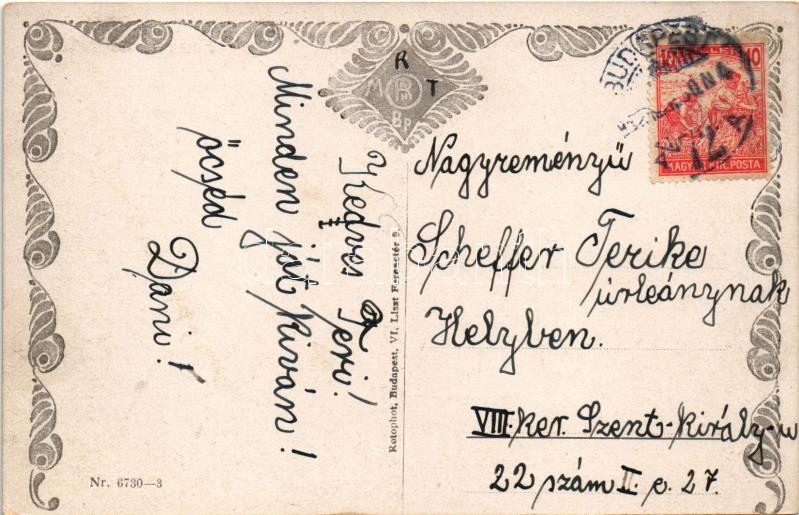 Kedves Teri!
Minden jót kíván!
öcséd
Dani!
R T
M R
Bp
Nagyreményü
Scheffer Terike
úrleánynak
Helyben.
VIII. ker. Szent-Király-u
22 szám II. e. 27.
Rotophot, Budapest, VI, Liszt Ferenctér 9.
Nr. 6730—3
BUDAPEST
10
MAGYAR KIR. POSTA
darabanth